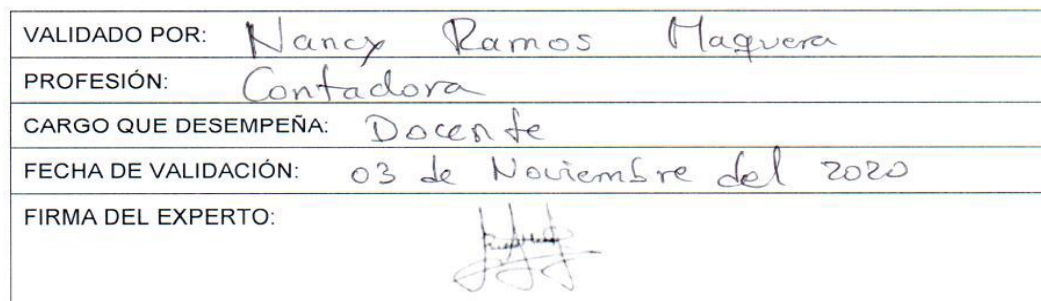 VALIDADO POR: Nancy Ramos Maquera
PROFESIÓN: Contadora
CARGO QUE DESEMPEÑA: Docente
FECHA DE VALIDACIÓN: 03 de Noviembre del 2020
FIRMA DEL EXPERTO: